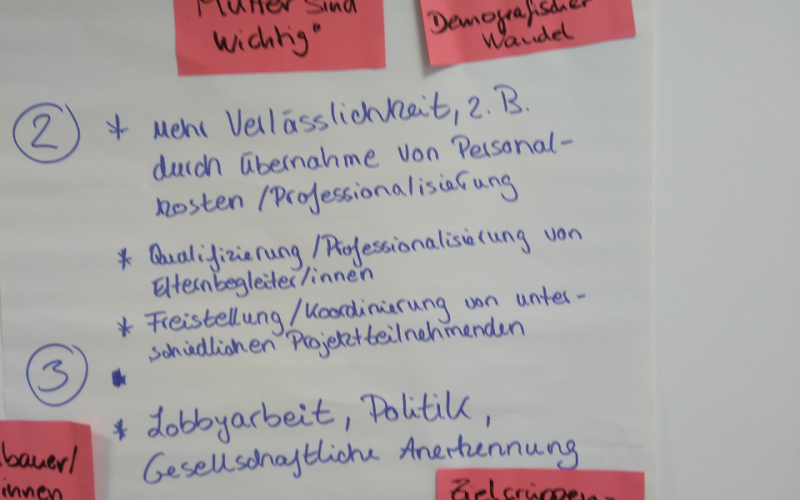 Mütter sind
wichtig"
Demografischer
Wandel
② * Mehr Verlässlichkeit, z. B.
durch Übernahme von Personal-
kosten / Professionalisierung
* Qualifizierung / Professionalisierung von
Elternbegleiter/innen
* Freistellung / Koordinierung von unter-
schiedlichen Projektteilnehmenden
③
* Lobbyarbeit, Politik,
Gesellschaftliche Anerkennung
bauer/
innen
Zielgruppen-